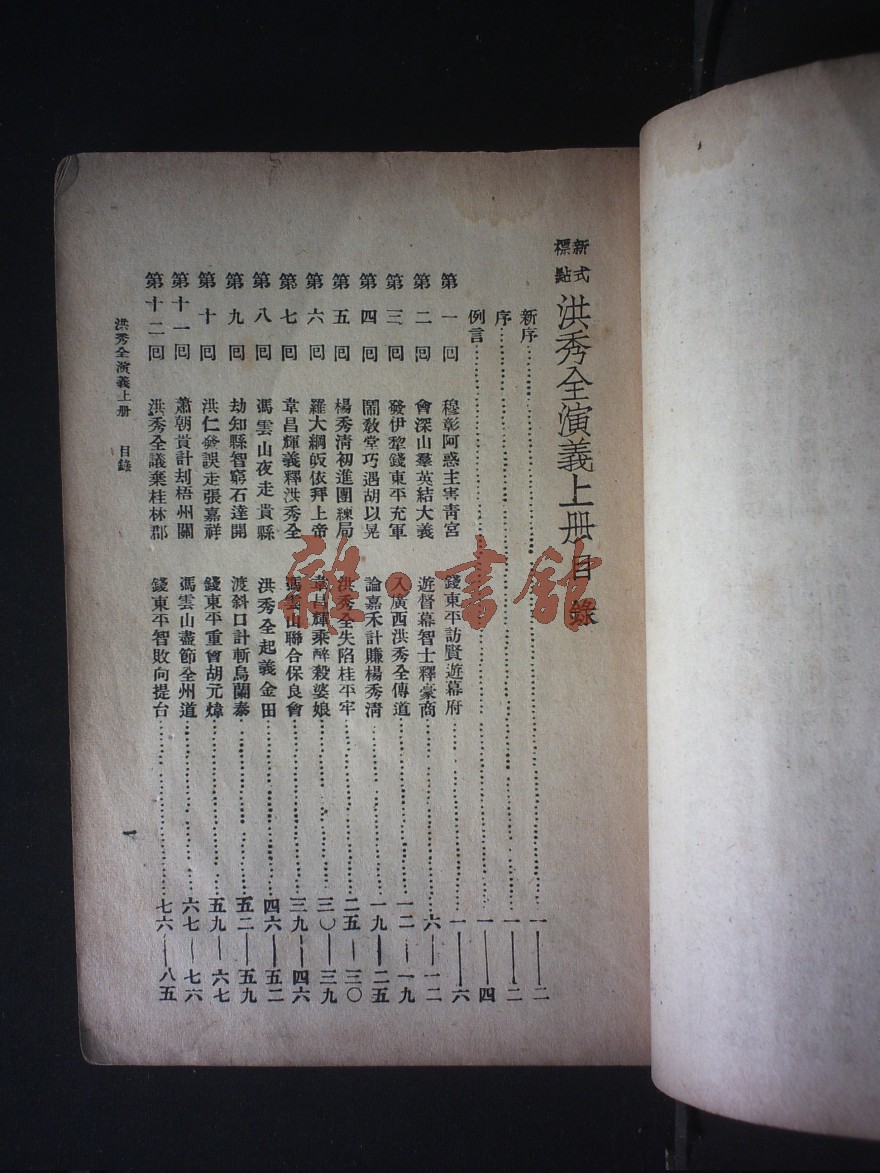 新式標點 洪秀全演義上册目錄
新序 一——二
序 一——二
例言 一——四
第一回 穆彰阿惑主害靑宮 錢東平訪賢遊幕府 一——六
第二回 會深山羣英結大義 遊督幕智士釋豪商 六——一二
第三回 發伊犂錢東平充軍 入廣西洪秀全傳道 一二——一九
第四回 鬧敎堂巧遇胡以晃 論嘉禾計賺楊秀淸 一九——二五
第五回 楊秀淸初進團練局 洪秀全失陷桂平牢 二五——三〇
第六回 羅大綱皈依拜上帝 韋昌輝乘醉殺婆娘 三〇——三九
第七回 韋昌輝義釋洪秀全 馮雲山聯合保良會 三九——四六
第八回 馮雲山夜走貴縣 洪秀全起義金田 四六——五二
第九回 劫知縣智窮石達開 渡斜口計斬烏蘭泰 五二——五九
第十回 洪仁發誤走張嘉祥 錢東平重會胡元煒 五九——六七
第十一回 蕭朝貴計刦梧州關 馮雲山盡節全州道 六七——七六
第十二回 洪秀全議棄桂林郡 錢東平智敗向提台 七六——八五
洪秀全演義上册 目錄
一
雜·書館